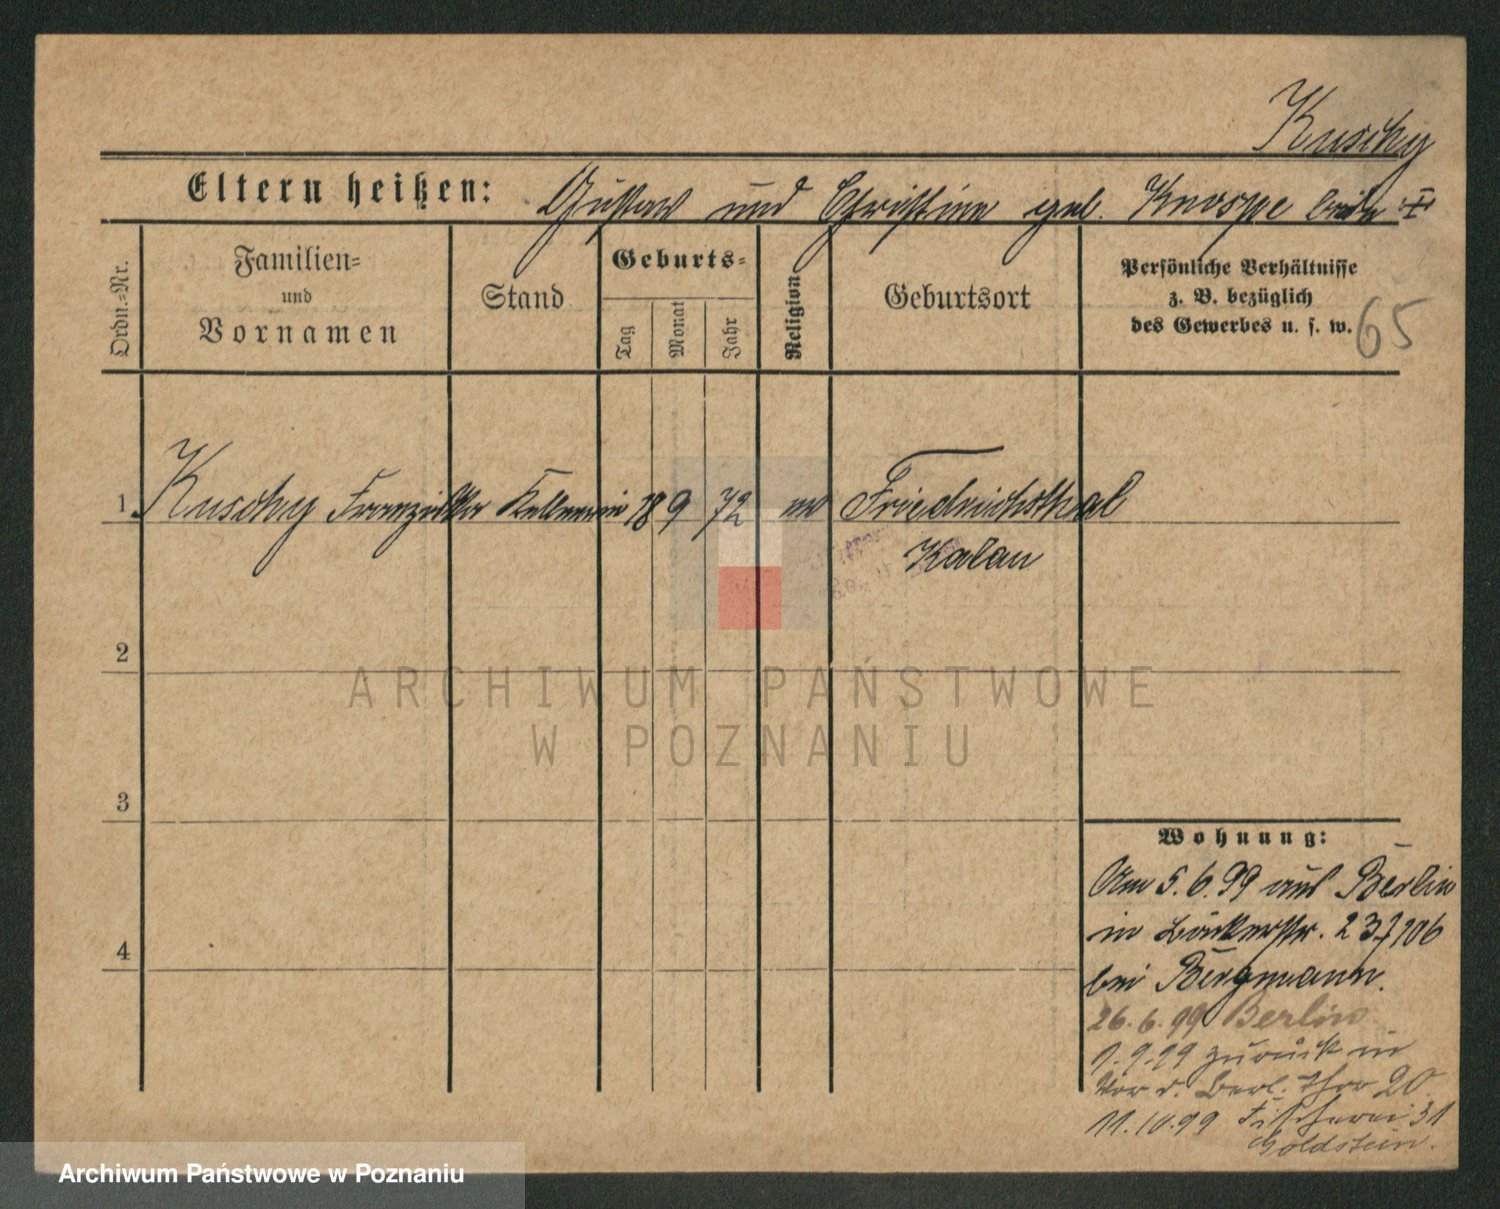 Kuschy
Eltern heißen: Gustav und Christine geb. Knospe beide
Ordn.-Nr.
Familien-
und
Vornamen
Stand
Geburts-
Tag
Monat
Jahr
Religion
Geburtsort
Persönliche Verhältnisse
z. B. bezüglich
des Gewerbes u. s. w.
65
1 Kuschy Franziska Kellnerin 18 9 72 ev Friedrichsthal
Kalau
2
3
4
Wohnung:
Am 5.6.99 aus Berlin
in Bäckerstr. 23
bei Bergmann.
26.6.99 Berlin
1.9.99 zurück in
Vor d. Berl. Thor 20
11.10.99 Fischerei 31
Goldstein.
ARCHIWUM PAŃSTWOWE
W POZNANIU
Archiwum Państwowe w Poznaniu